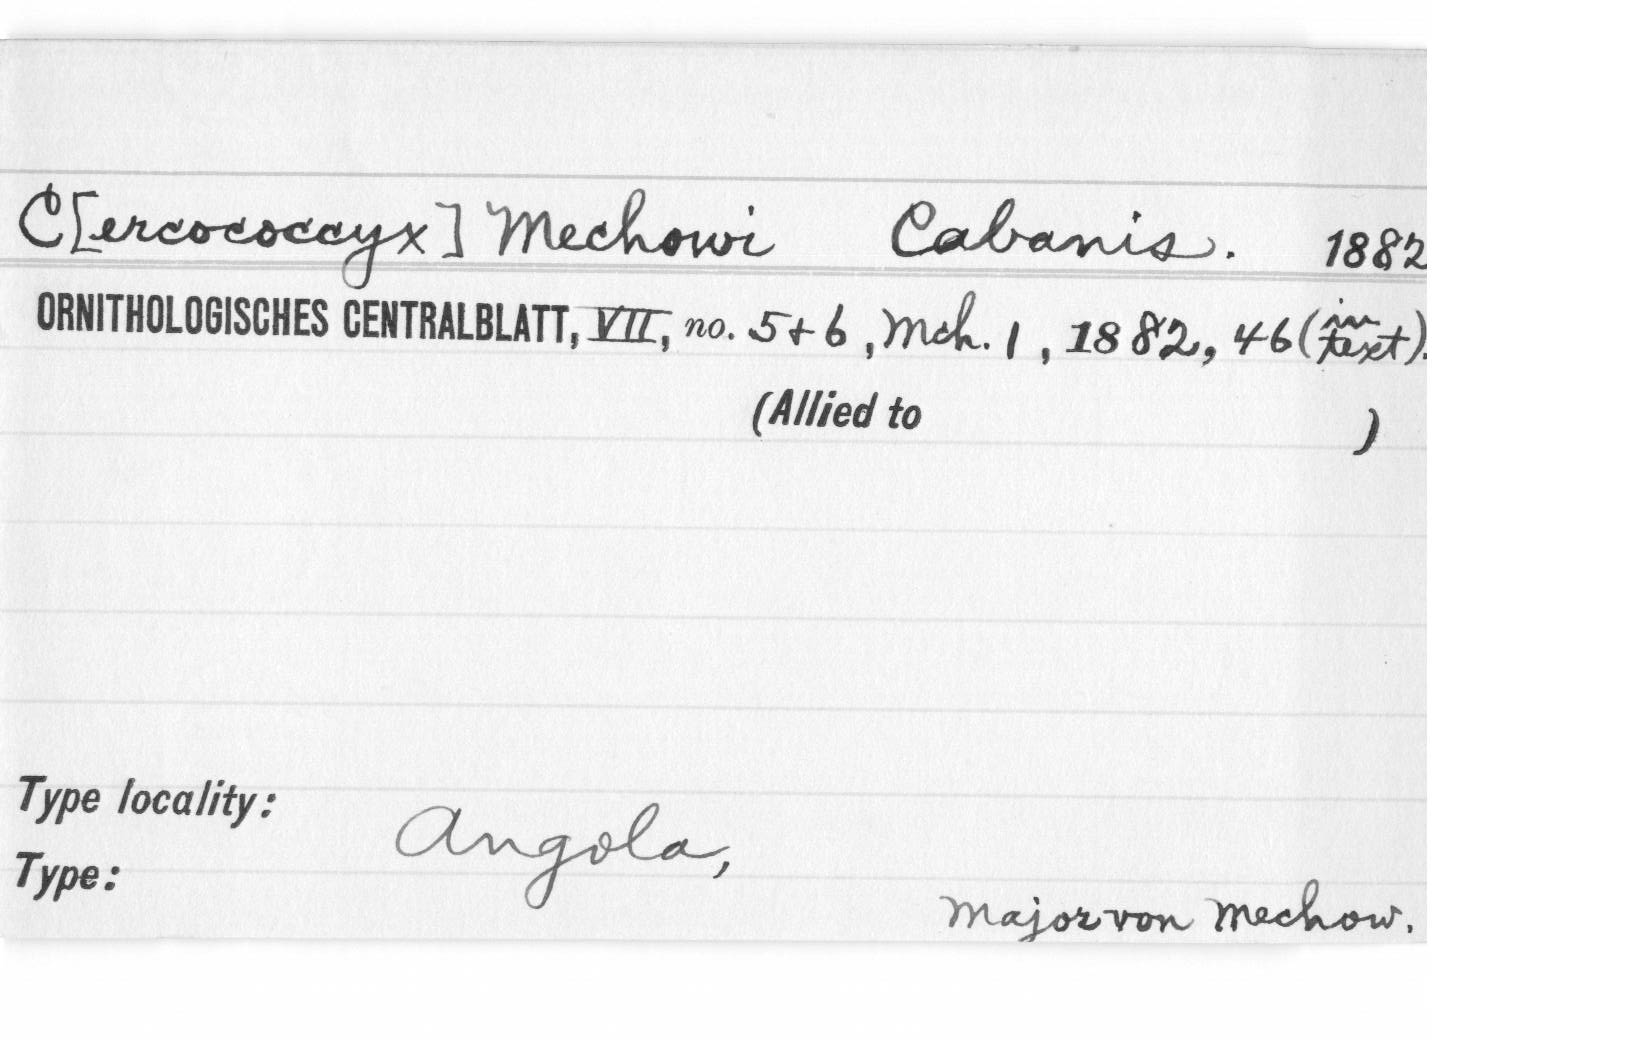 C[ercococcyx] Mechowi Cabanis. 1882
ORNITHOLOGISCHES CENTRALBLATT, VII, no. 5+6, Mch. 1, 1882, 46 (in text).
(Allied to )
Type locality:
Angola,
Type:
Major von Mechow.